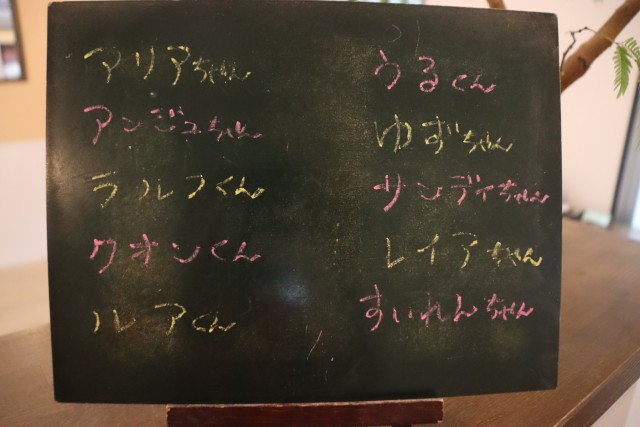 アリアちゃん
アンジュちゃん
ラルフくん
クオンくん
ルアくん
うるくん
ゆずちゃん
サンディちゃん
レイアちゃん
すいれんちゃん